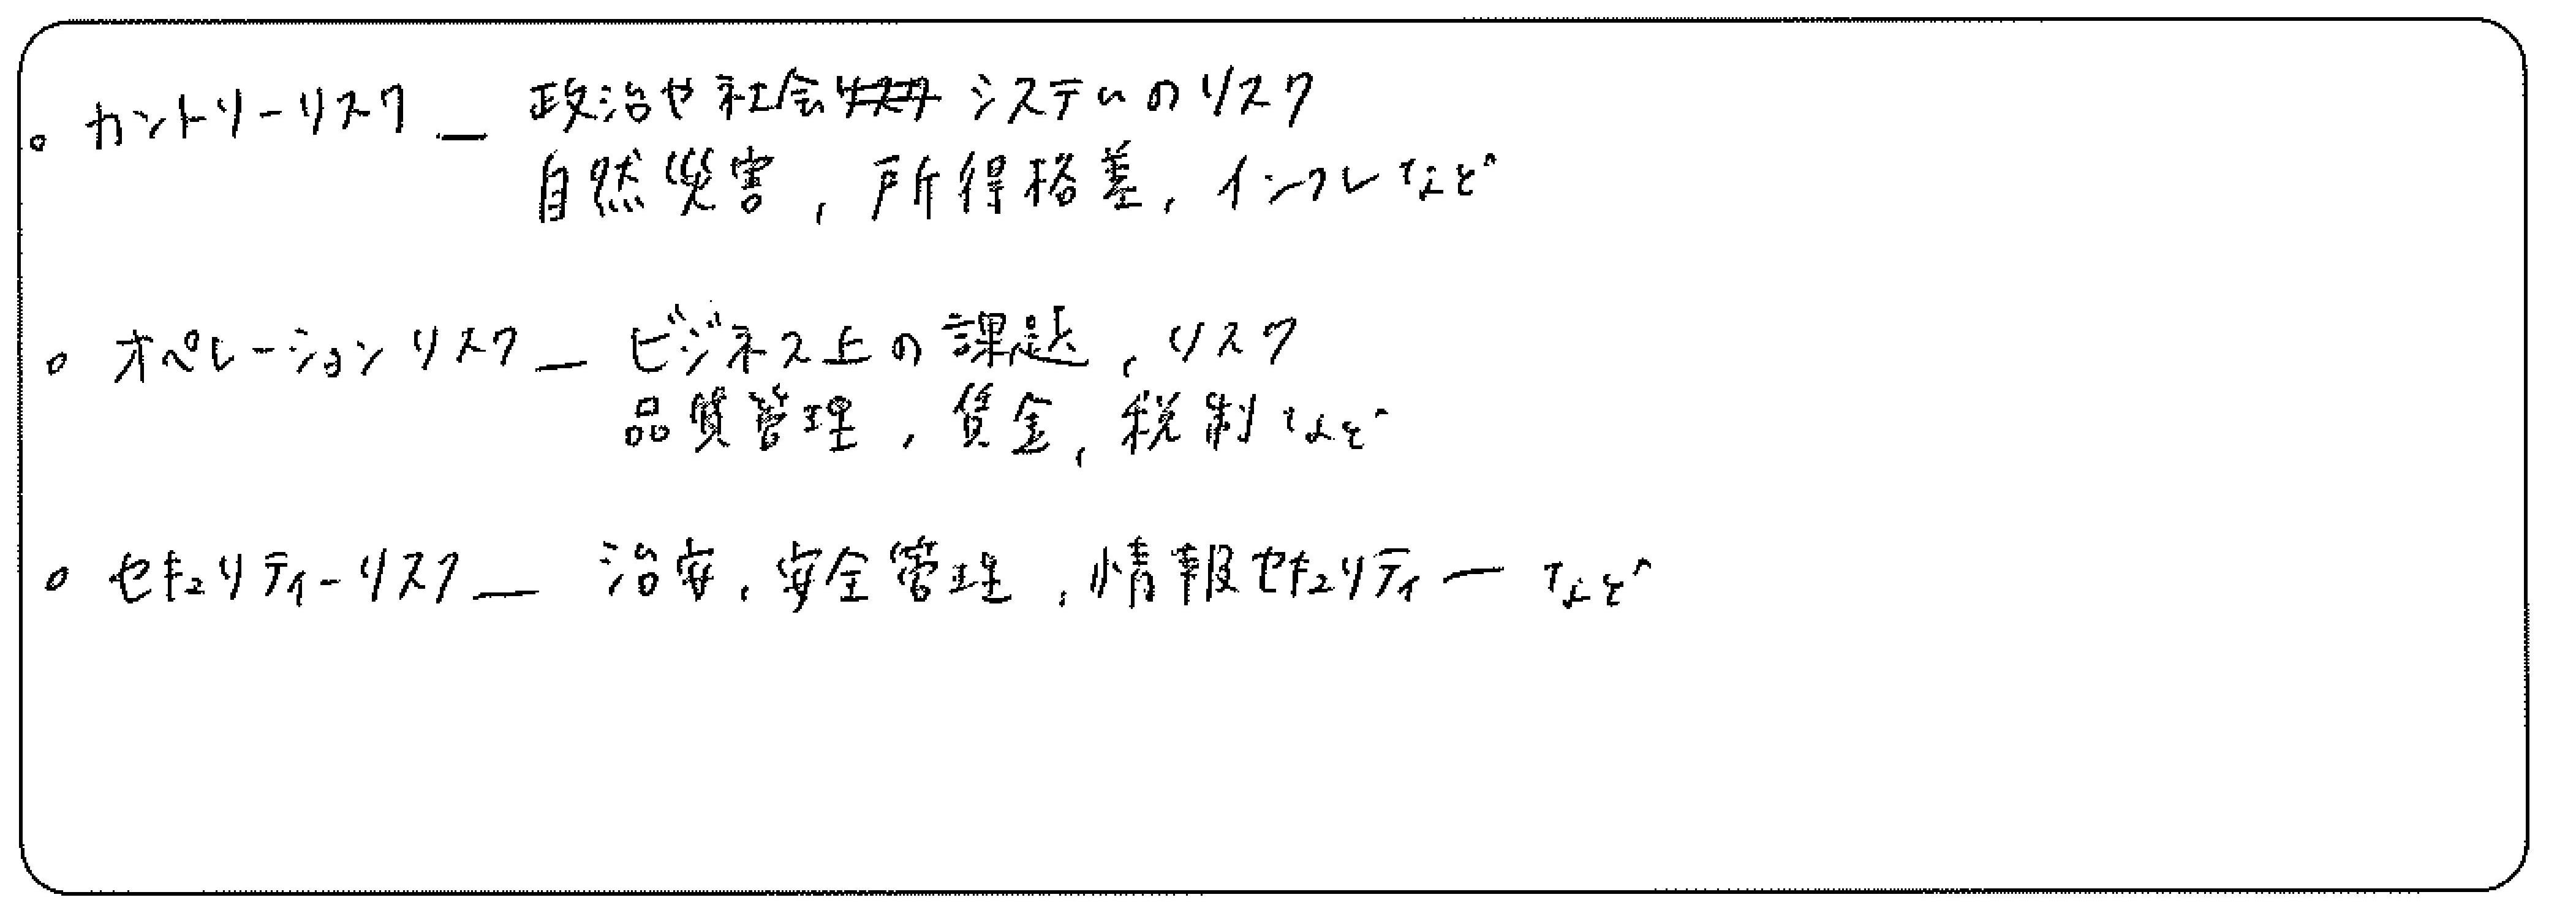 。カントリーリスク ー 政治や社会システムのリスク
自然災害, 所得格差, インフレなど
。オペレーションリスク ー ビジネス上の課題, リスク
品質管理, 賃金, 税制など
。セキュリティーリスク ー 治安, 安全管理, 情報セキュリティーなど